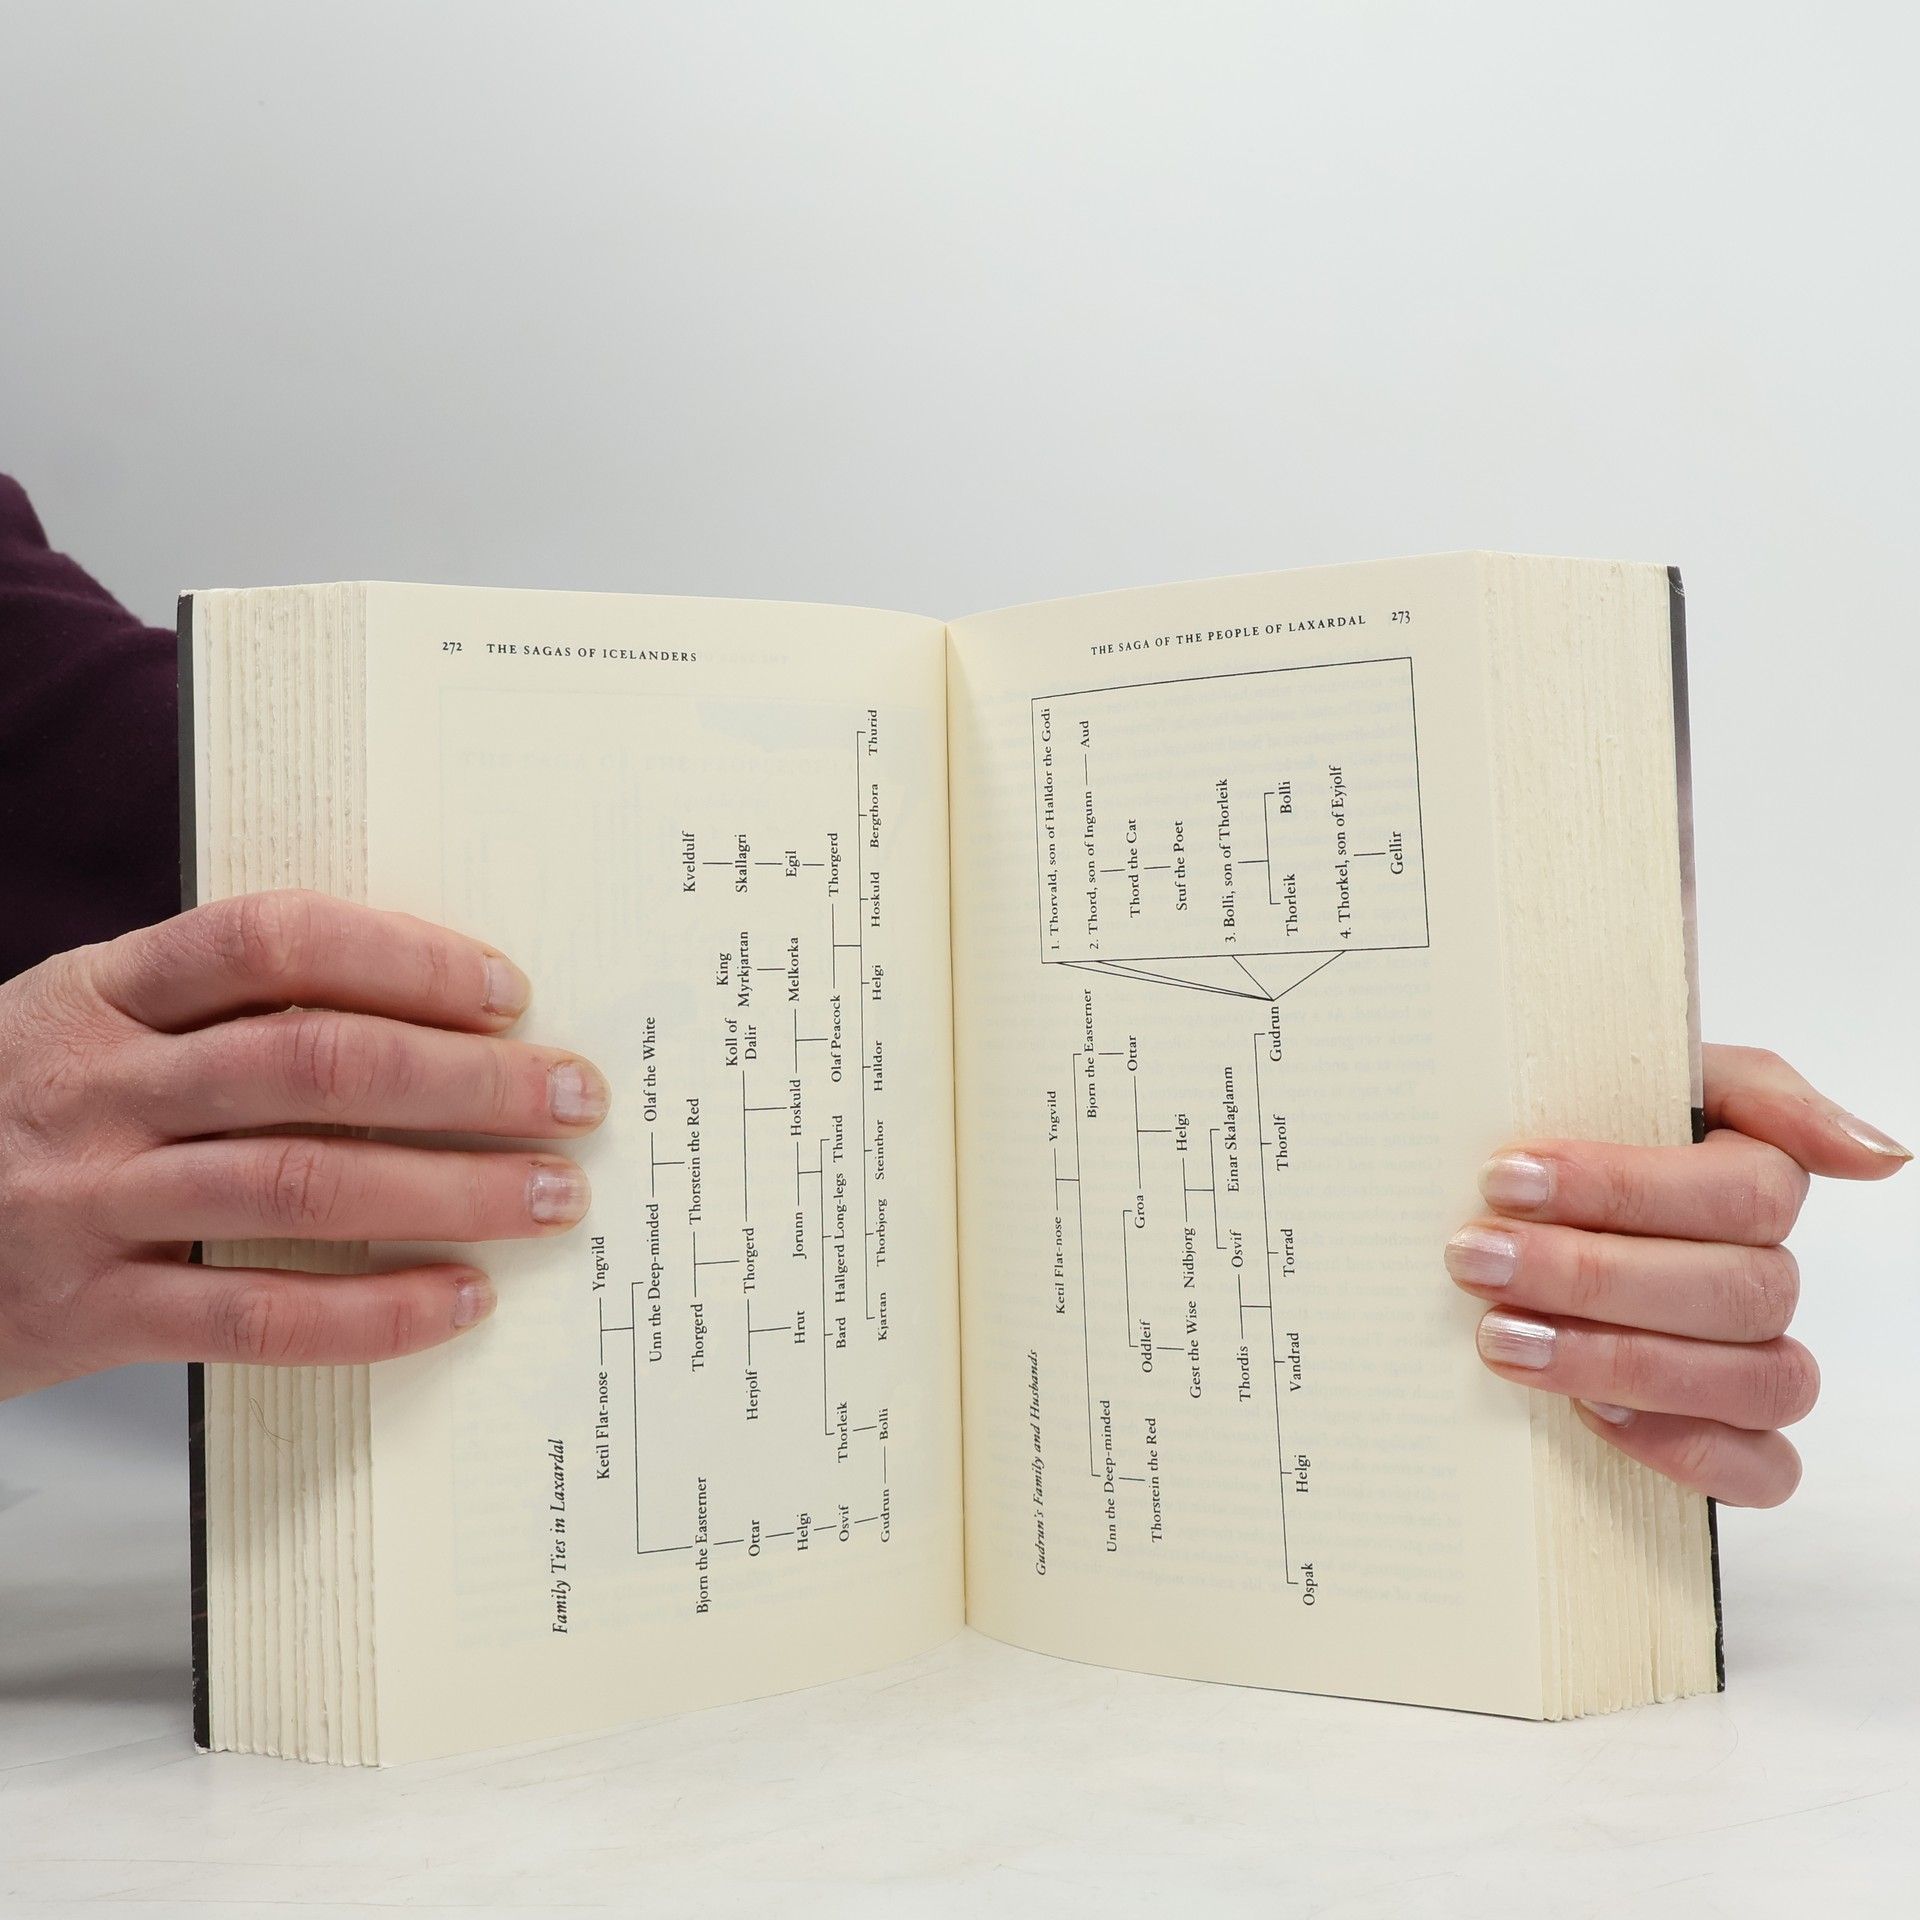 272 THE SAGAS OF ICELANDERS
Family Ties in Laxardal
Ketil Flat-nose Yngvild
Unn the Deep-minded Olaf the White
Bjorn the Easterner Thorgerd Thorstein the Red Kveldulf
Herjolf Thorgerd Koll of Dalir King Myrkjartan Skallagri
Ottar
Helgi Hrut Jorunn Hoskuld Melkorka Egil
Osvif Thorleik Bard Hallgerd Long-legs Thurid Olaf Peacock Thorgerd
Gudrun Bolli Kjartan Thorbjorg Steinthor Halldor Helgi Hoskuld Bergthora Thurid
THE SAGA OF THE PEOPLE OF LAXARDAL 273
Gudrun's Family and Husbands
Ketil Flat-nose Yngvild
Unn the Deep-minded Bjorn the Easterner
Thorstein the Red Oddleif Groa Ottar
Gest the Wise Nidbjorg Helgi
Thordis Osvif Einar Skalaglamm
Ospak Helgi Vandrad Torrad Thorolf Gudrun
1. Thorvald, son of Halldor the Godi
2. Thord, son of Ingunn Aud
Thord the Cat
Stuf the Poet
3. Bolli, son of Thorleik
Thorleik Bolli
4. Thorkel, son of Eyjolf
Gellir